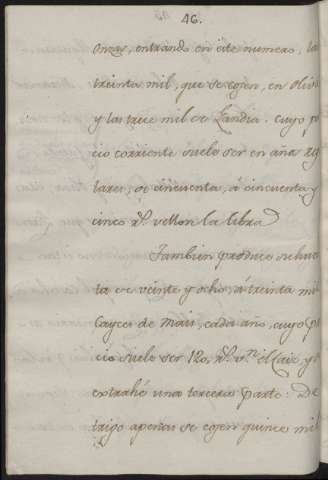 46.
onzas, entrando en este numero, las
treinta mil, que se cogen, en Oliva
y las trece mil de Gandia. cuyo pre
cio corriente suele ser en años Regu
lares, de cincuenta, á cincuenta y
cinco r.^s vellon la libra
Tambien produce su huer
ta de veinte y ocho, á treinta mil
Cayces de Maiz, cada año, cuyo pre
cio suele ser 120, r.^s v.^n el Caiz, y se
extrahé una tercera parte: De
trigo apenas se cogen quince mil